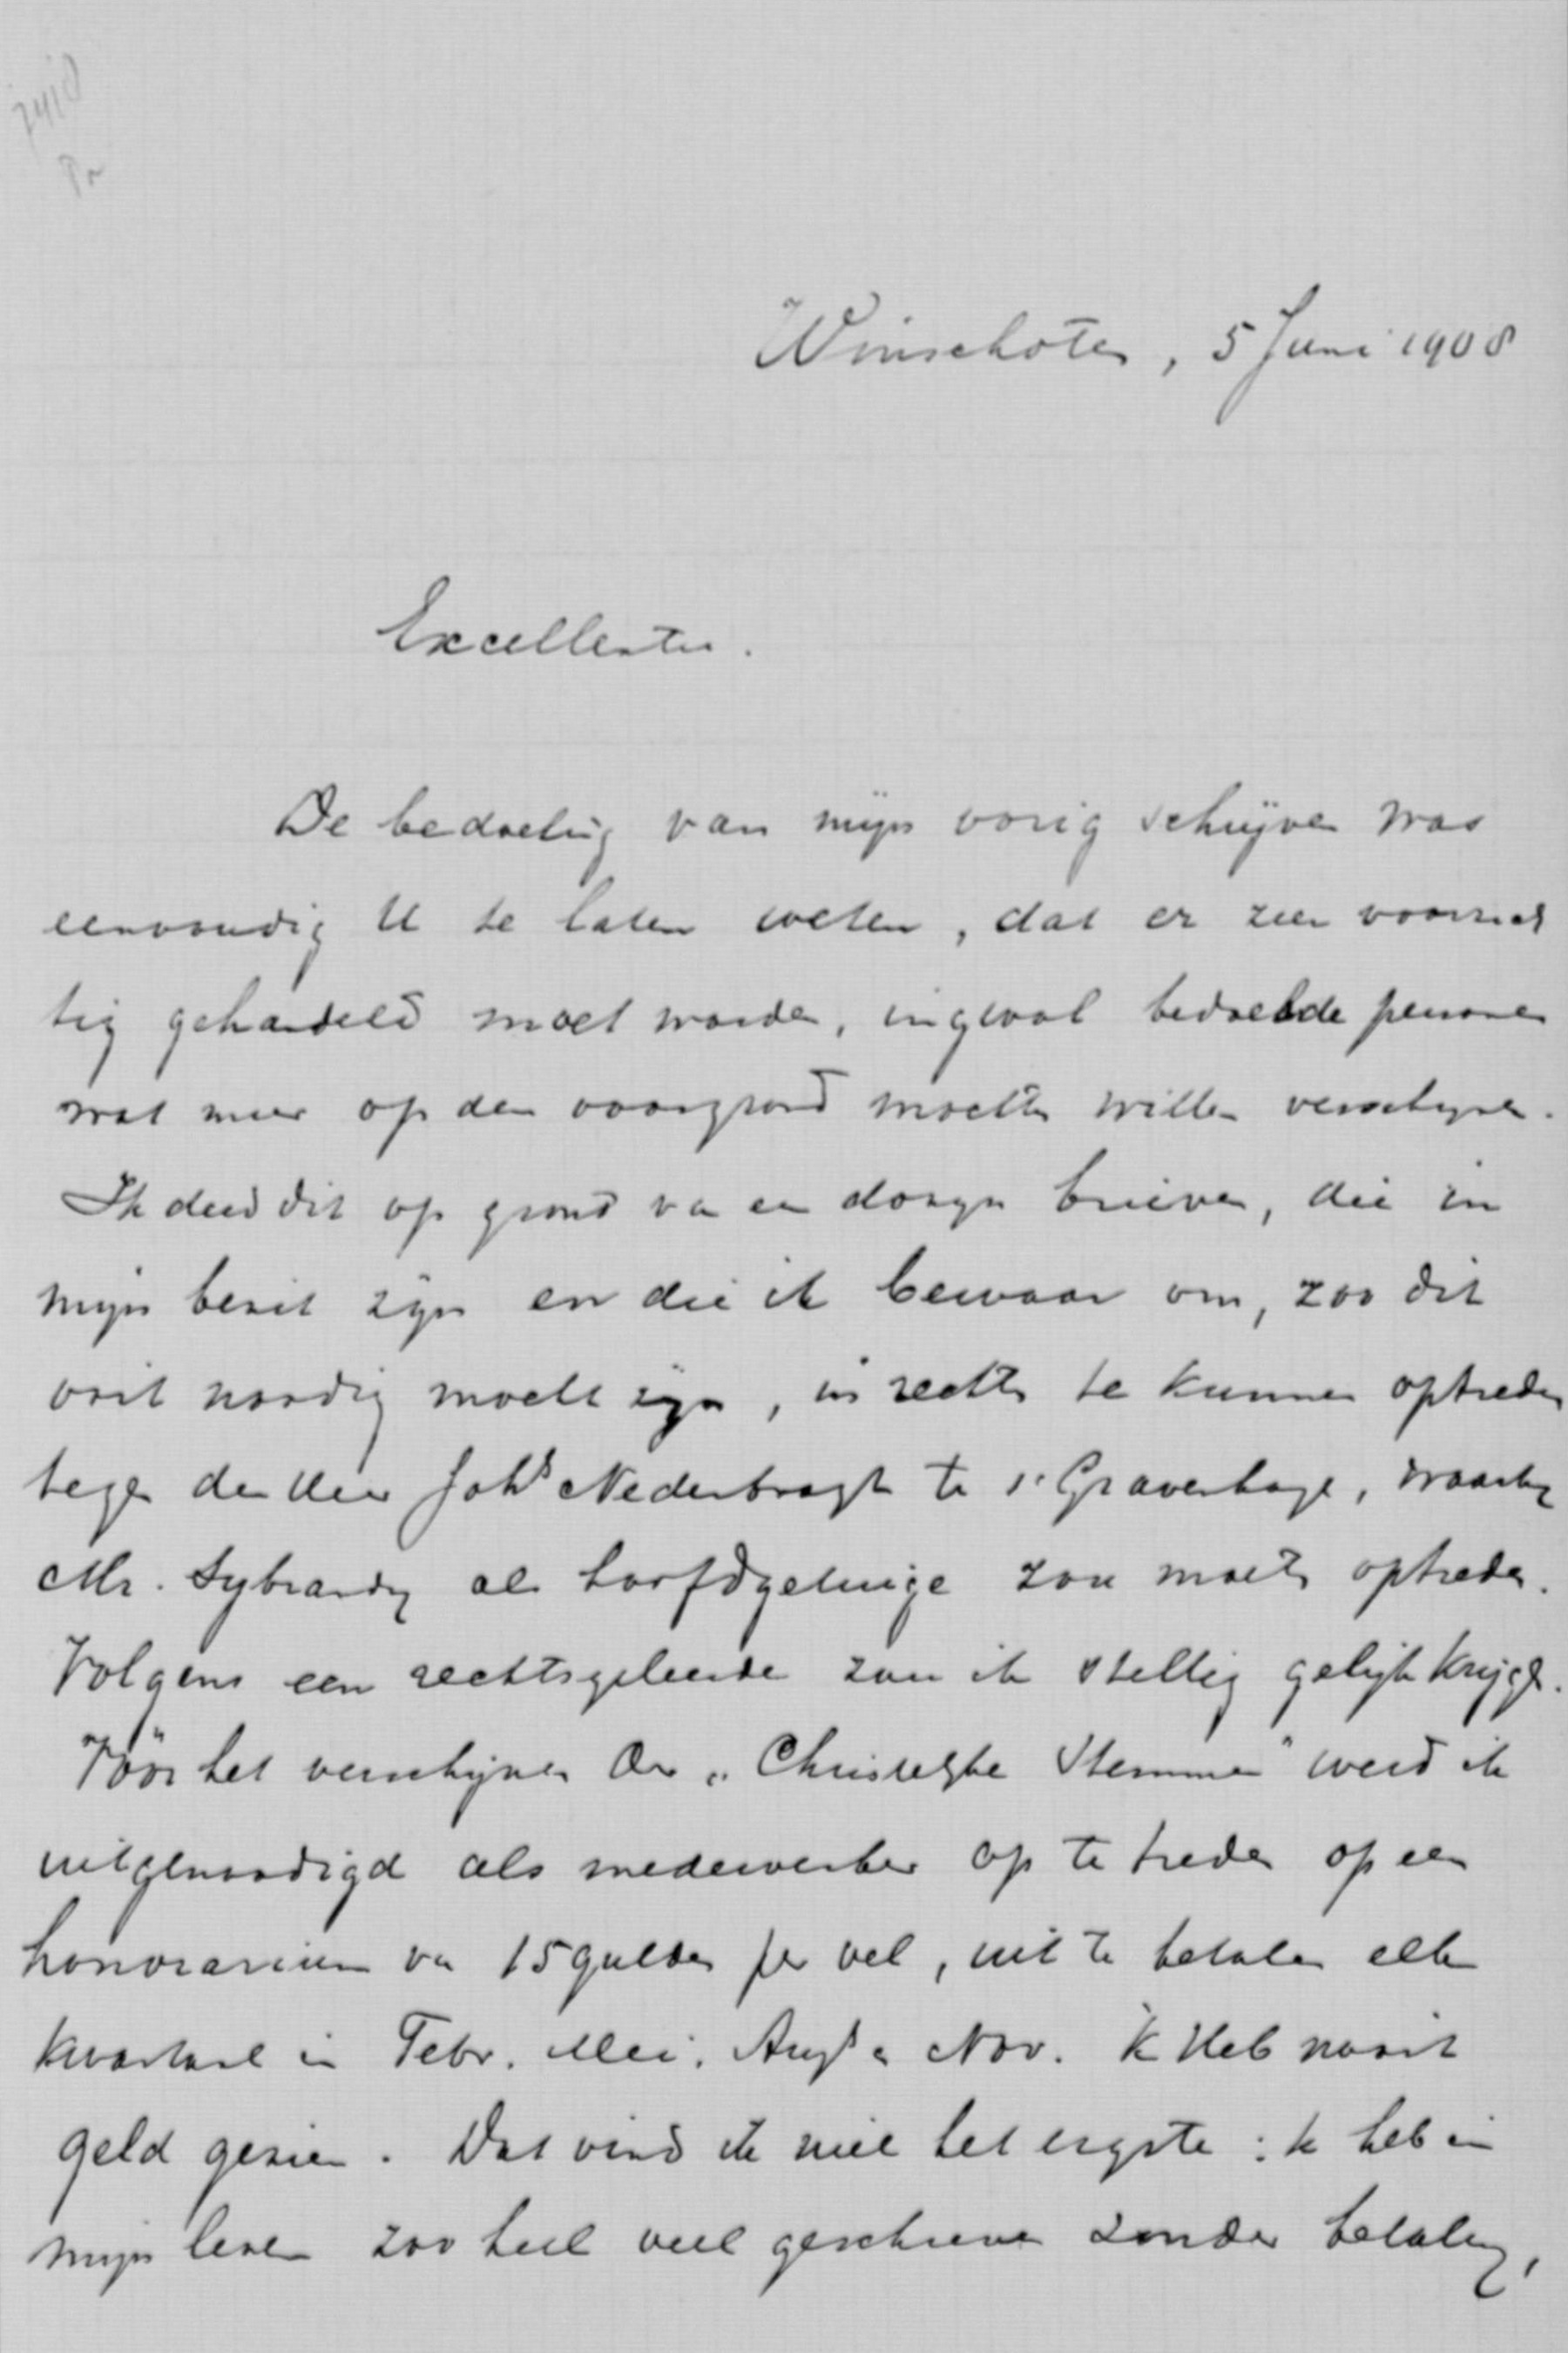 7418
Winschoten, 5 Juni 1908
Excellentie.
De bedoeling van mijn vorig schrijven was
eenvoudig U te laten weten, dat er zeer voorzich
tig gehandeld moet worden, ingeval bedoelde personen
wat meer op den voorgrond mochten willen verschijnen.
Ik deed dit op grond van een dozijn brieven, die in
mijn bezit zijn en die ik bewaar om, zoo dit
ooit noodig mocht zijn, in rechten te kunnen optreden
tegen den Heer Johs Nederbragt te 's Gravenhage, waarbij
Mr. Sybrandy als hoofdgetuige zou moeten optreden.
Volgens een rechtsgeleerde zou ik stellig gelijk krijgen.
Vóór het verschijnen der „Christelijke Stemmen" werd ik
uitgenoodigd als medewerker op te treden op een
honorarium van 15 gulden per vel, uit te betalen elk
kwartaal in Febr. Mei, Aug. en Nov. Ik heb nooit
geld gezien. Dat vind ik niet het ergste: ik heb in
mijn leven zoo heel veel geschreven zonder betaling,